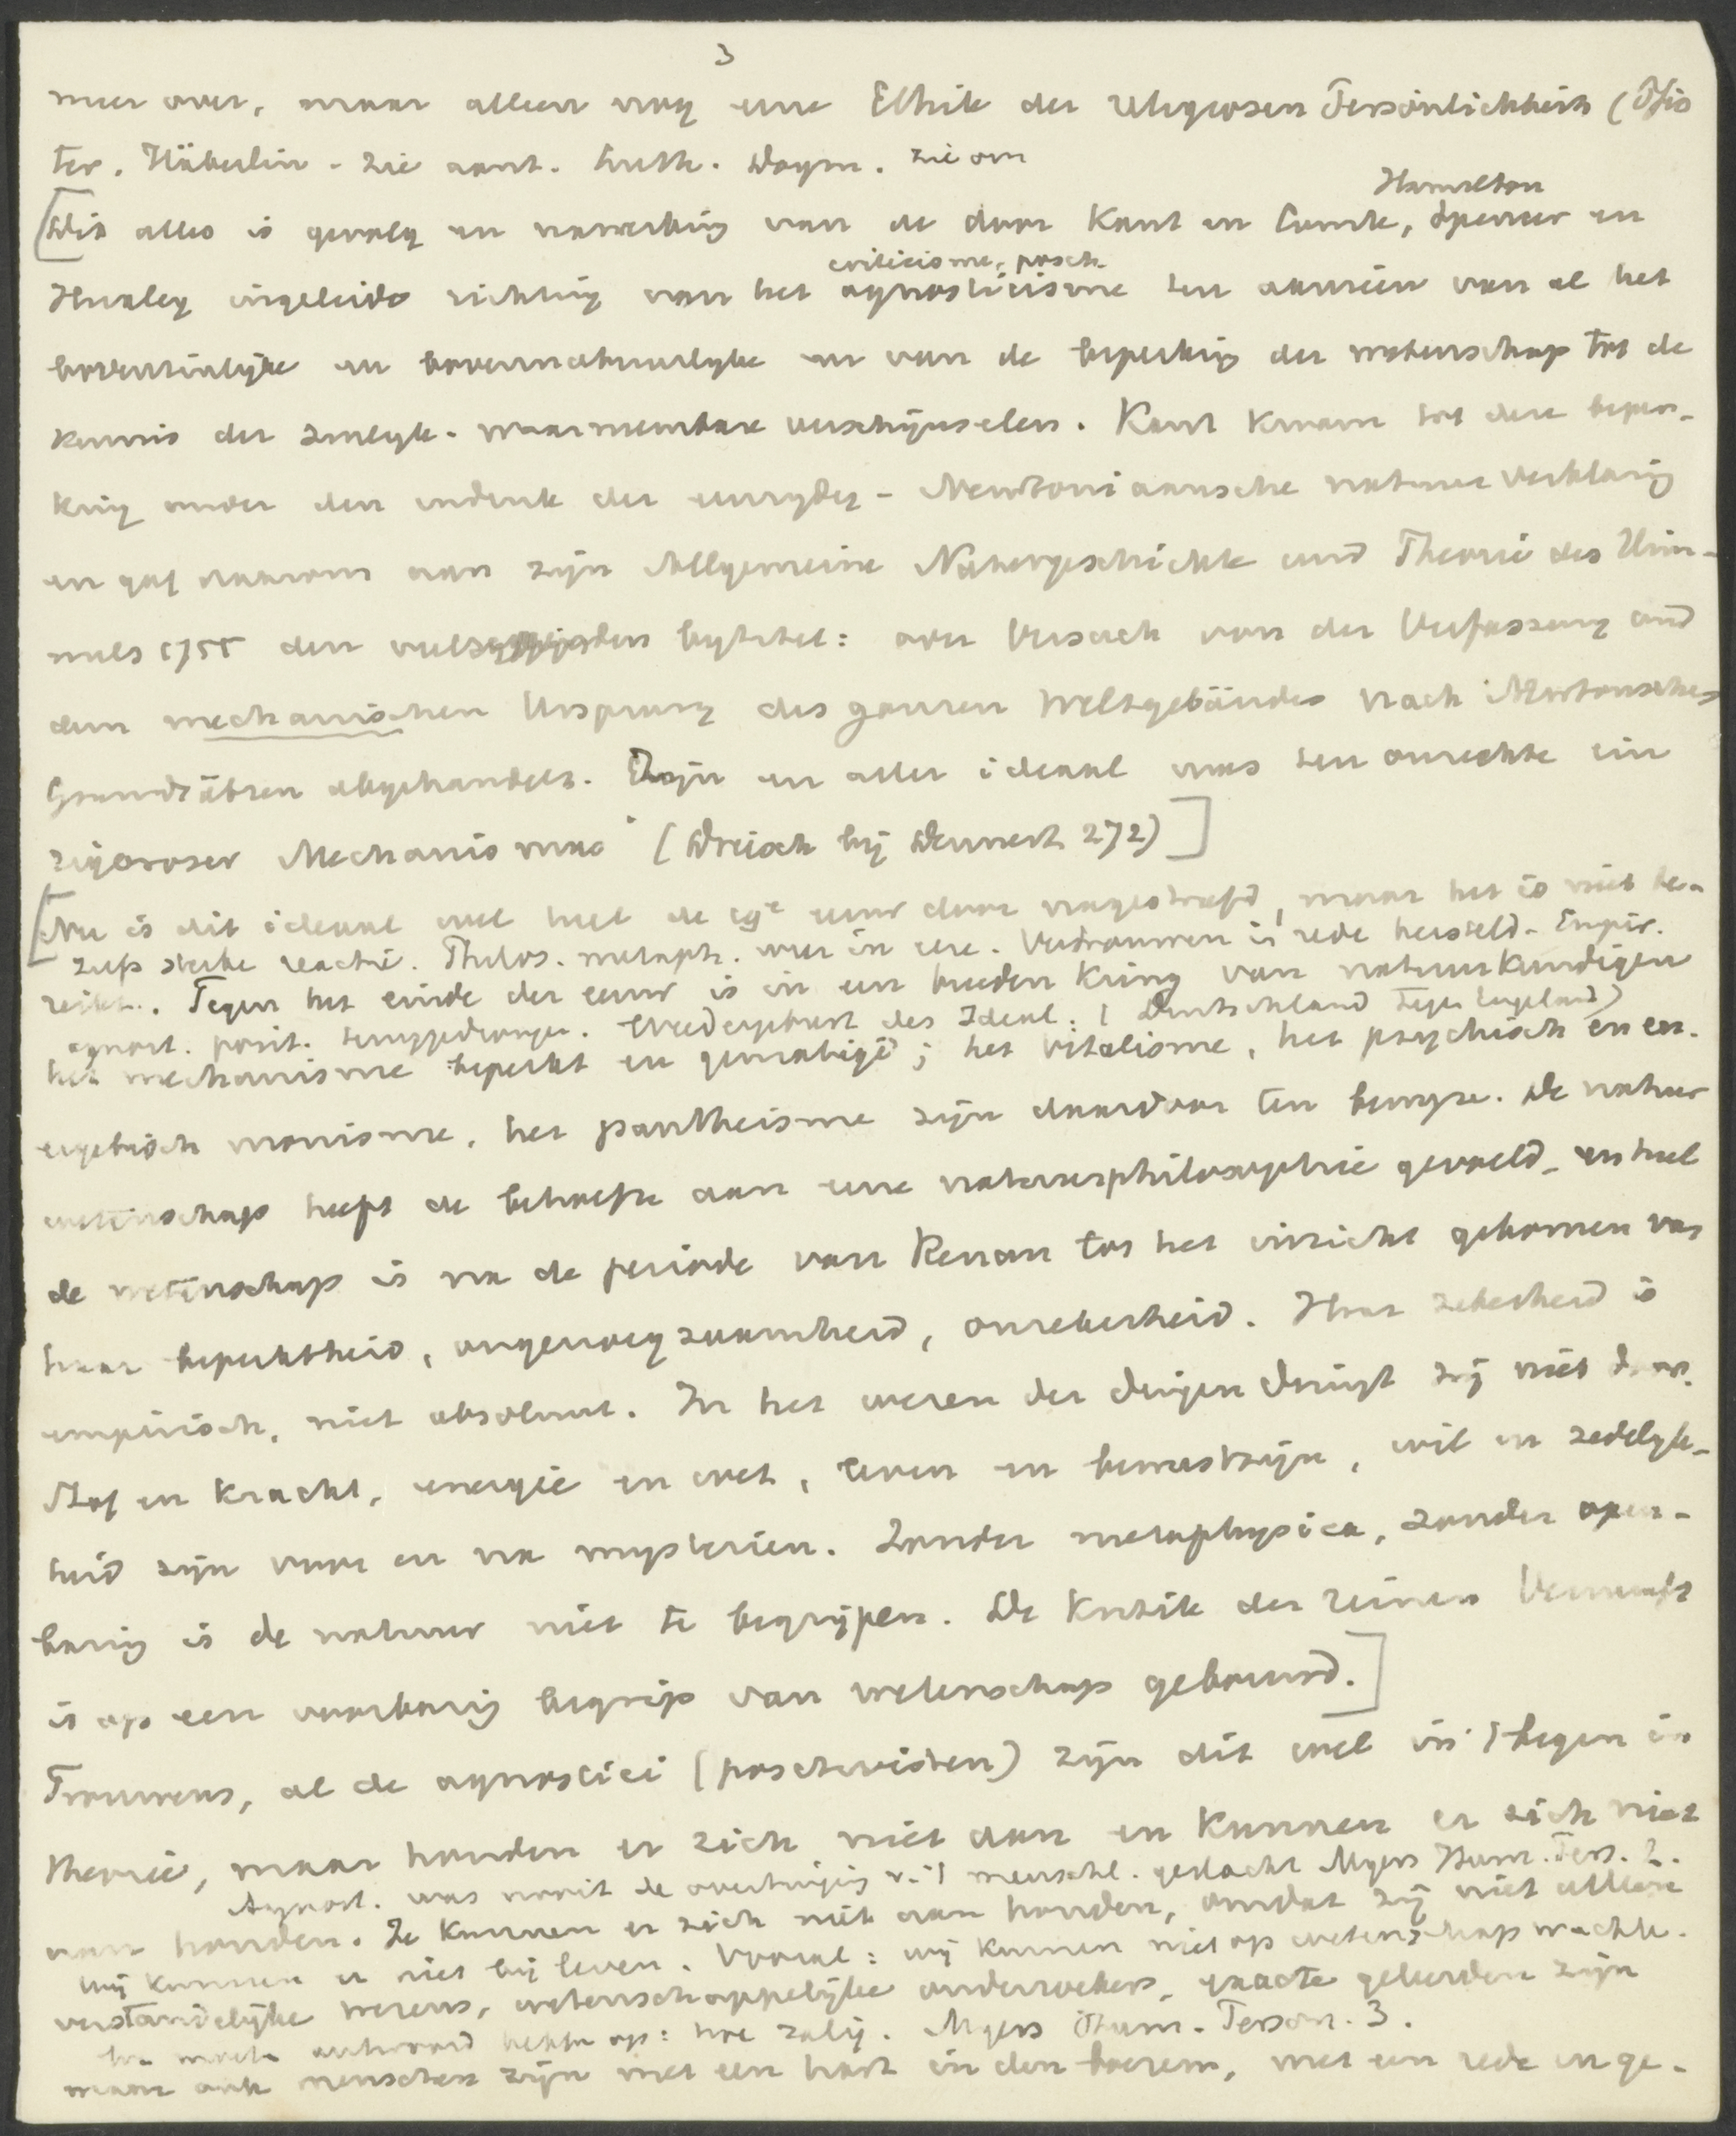 3
meer over, maar alleen nog eene Ethik der religiösen Persönlichkeit (Pfis
ter, Häberlin - zie aant. Luth. Dogm. zie om
Hamilton
[Dit alles is gevolg en nawerking van de door Kant en Comte, Spencer en
criticisme, posit.
Huxley ingeleide richting van het agnosticisme ten aanzien van al het
bovenzinlijke en bovennatuurlyke en van de beperking der wetenschap tot de
kennis der zinlyk-waarneembare verschijnselen. Kant kwam tot deze beper-
king onder den indruk der eenzydig-Newtoniaansche natuurverklaring
en gaf daarom aan zijn Allgemeine Naturgeschichte und Theorie des Him-
mels 1755 den veelzeggenden bytitel: oder Versuch von der Verfassung und
dem mechanischen Ursprung des ganzen Weltgebäudes nach Newtonschen
Grundsätzen abgehandelt. Zijn en aller ideaal was ten onrechte ein
rigoroser Mechanismus" (Driesch bij Dennert 272)]
[Nu is dit ideaal wel heel de 19e eeuw door nagestreefd, maar het is niet be-
zelfs sterke reactie. Philos. metaph. weer in eere. Vertrouwen in rede hersteld. Empir.
reikt. Tegen het einde der eeuw is in een breeden kring van natuurkundigen
agnost. posit. teruggedrongen. Wedergeburt des Ideal. (Deutschland tegen Engeland)
het mechanisme beperkt en gematigd; het vitalisme, het psychisch en en-
ergetisch monisme, het pantheisme zijn daarvoor ten bewyze. De natuur
wetenschap heeft de behoefte aan eene natuurphilosophie gevoeld, en heel
de wetenschap is na de periode van Renan tot het inzicht gekomen van
haar beperktheid, ongenoegzaamheid, onzekerheid. Haar zekerheid is
empirisch, niet absoluut. In het wezen der dingen dringt zij niet door.
Stof en kracht, energie en wet, leven en bewustzijn, wil en zedelyk-
heid zijn voor en na mysteriën. Zonder metaphysica, zonder open-
baring is de natuur niet te begrijpen. De Kritik der reinen Vernunft
is op een voorbarig begrip van wetenschap gebouwd.]
Trouwens, al de agnostici (positivisten) zijn dit wel in 't begin in
theorie, maar houden er zich niet aan en kunnen er zich niet
Agnost. was nooit de overtuiging v. 't menschl. geslacht Myers Hum. Pers. 2.
aan houden. Ze kunnen er zich niet aan houden, omdat zij niet alleen
Wij kunnen er niet bij leven. Vooral: wij kunnen niet op wetenschap wachten.
verstandelijke wezens, wetenschappelijke onderzoekers, exacte geleerden zijn
antwoord hebben op: hoe zalig. Myers Hum. Person. 3.
maar ook menschen zijn met een hart in den boezem, met een rede en ge-